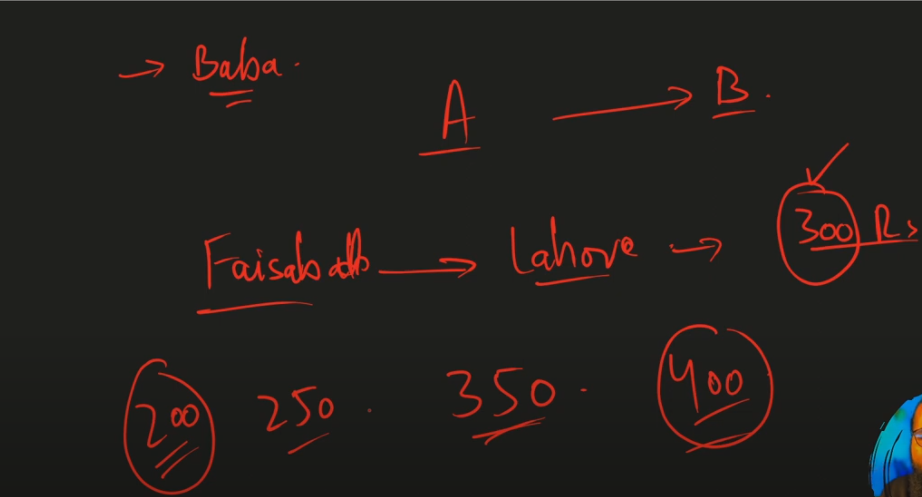 → Baba.
A → B.
Faisabadb → Lahore → 300 Rs
200 250. 350. 400